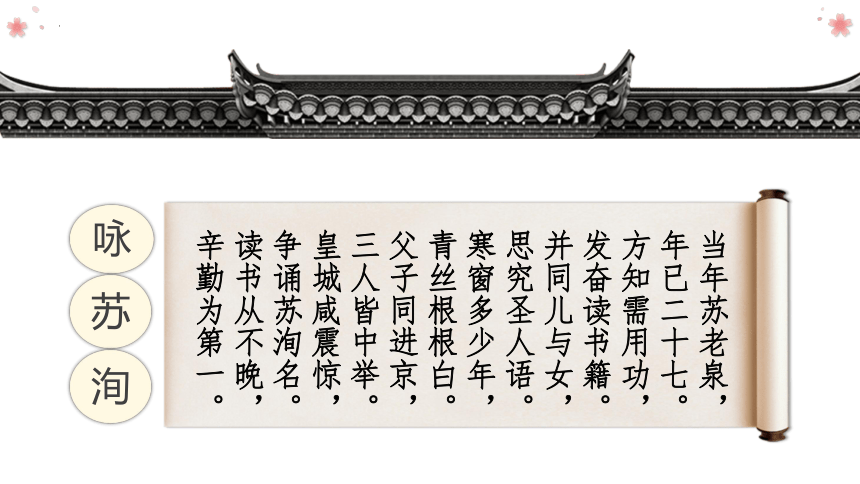 咏苏洵
当年苏老泉，
年已二十七。
方知需用功，
发奋读书籍。
并同儿与女，
思究圣人语。
寒窗多少年，
青丝根根白。
父子同进京，
三人皆中举。
皇城咸震惊，
争诵苏洵名。
读书从不晚，
辛勤为第一。